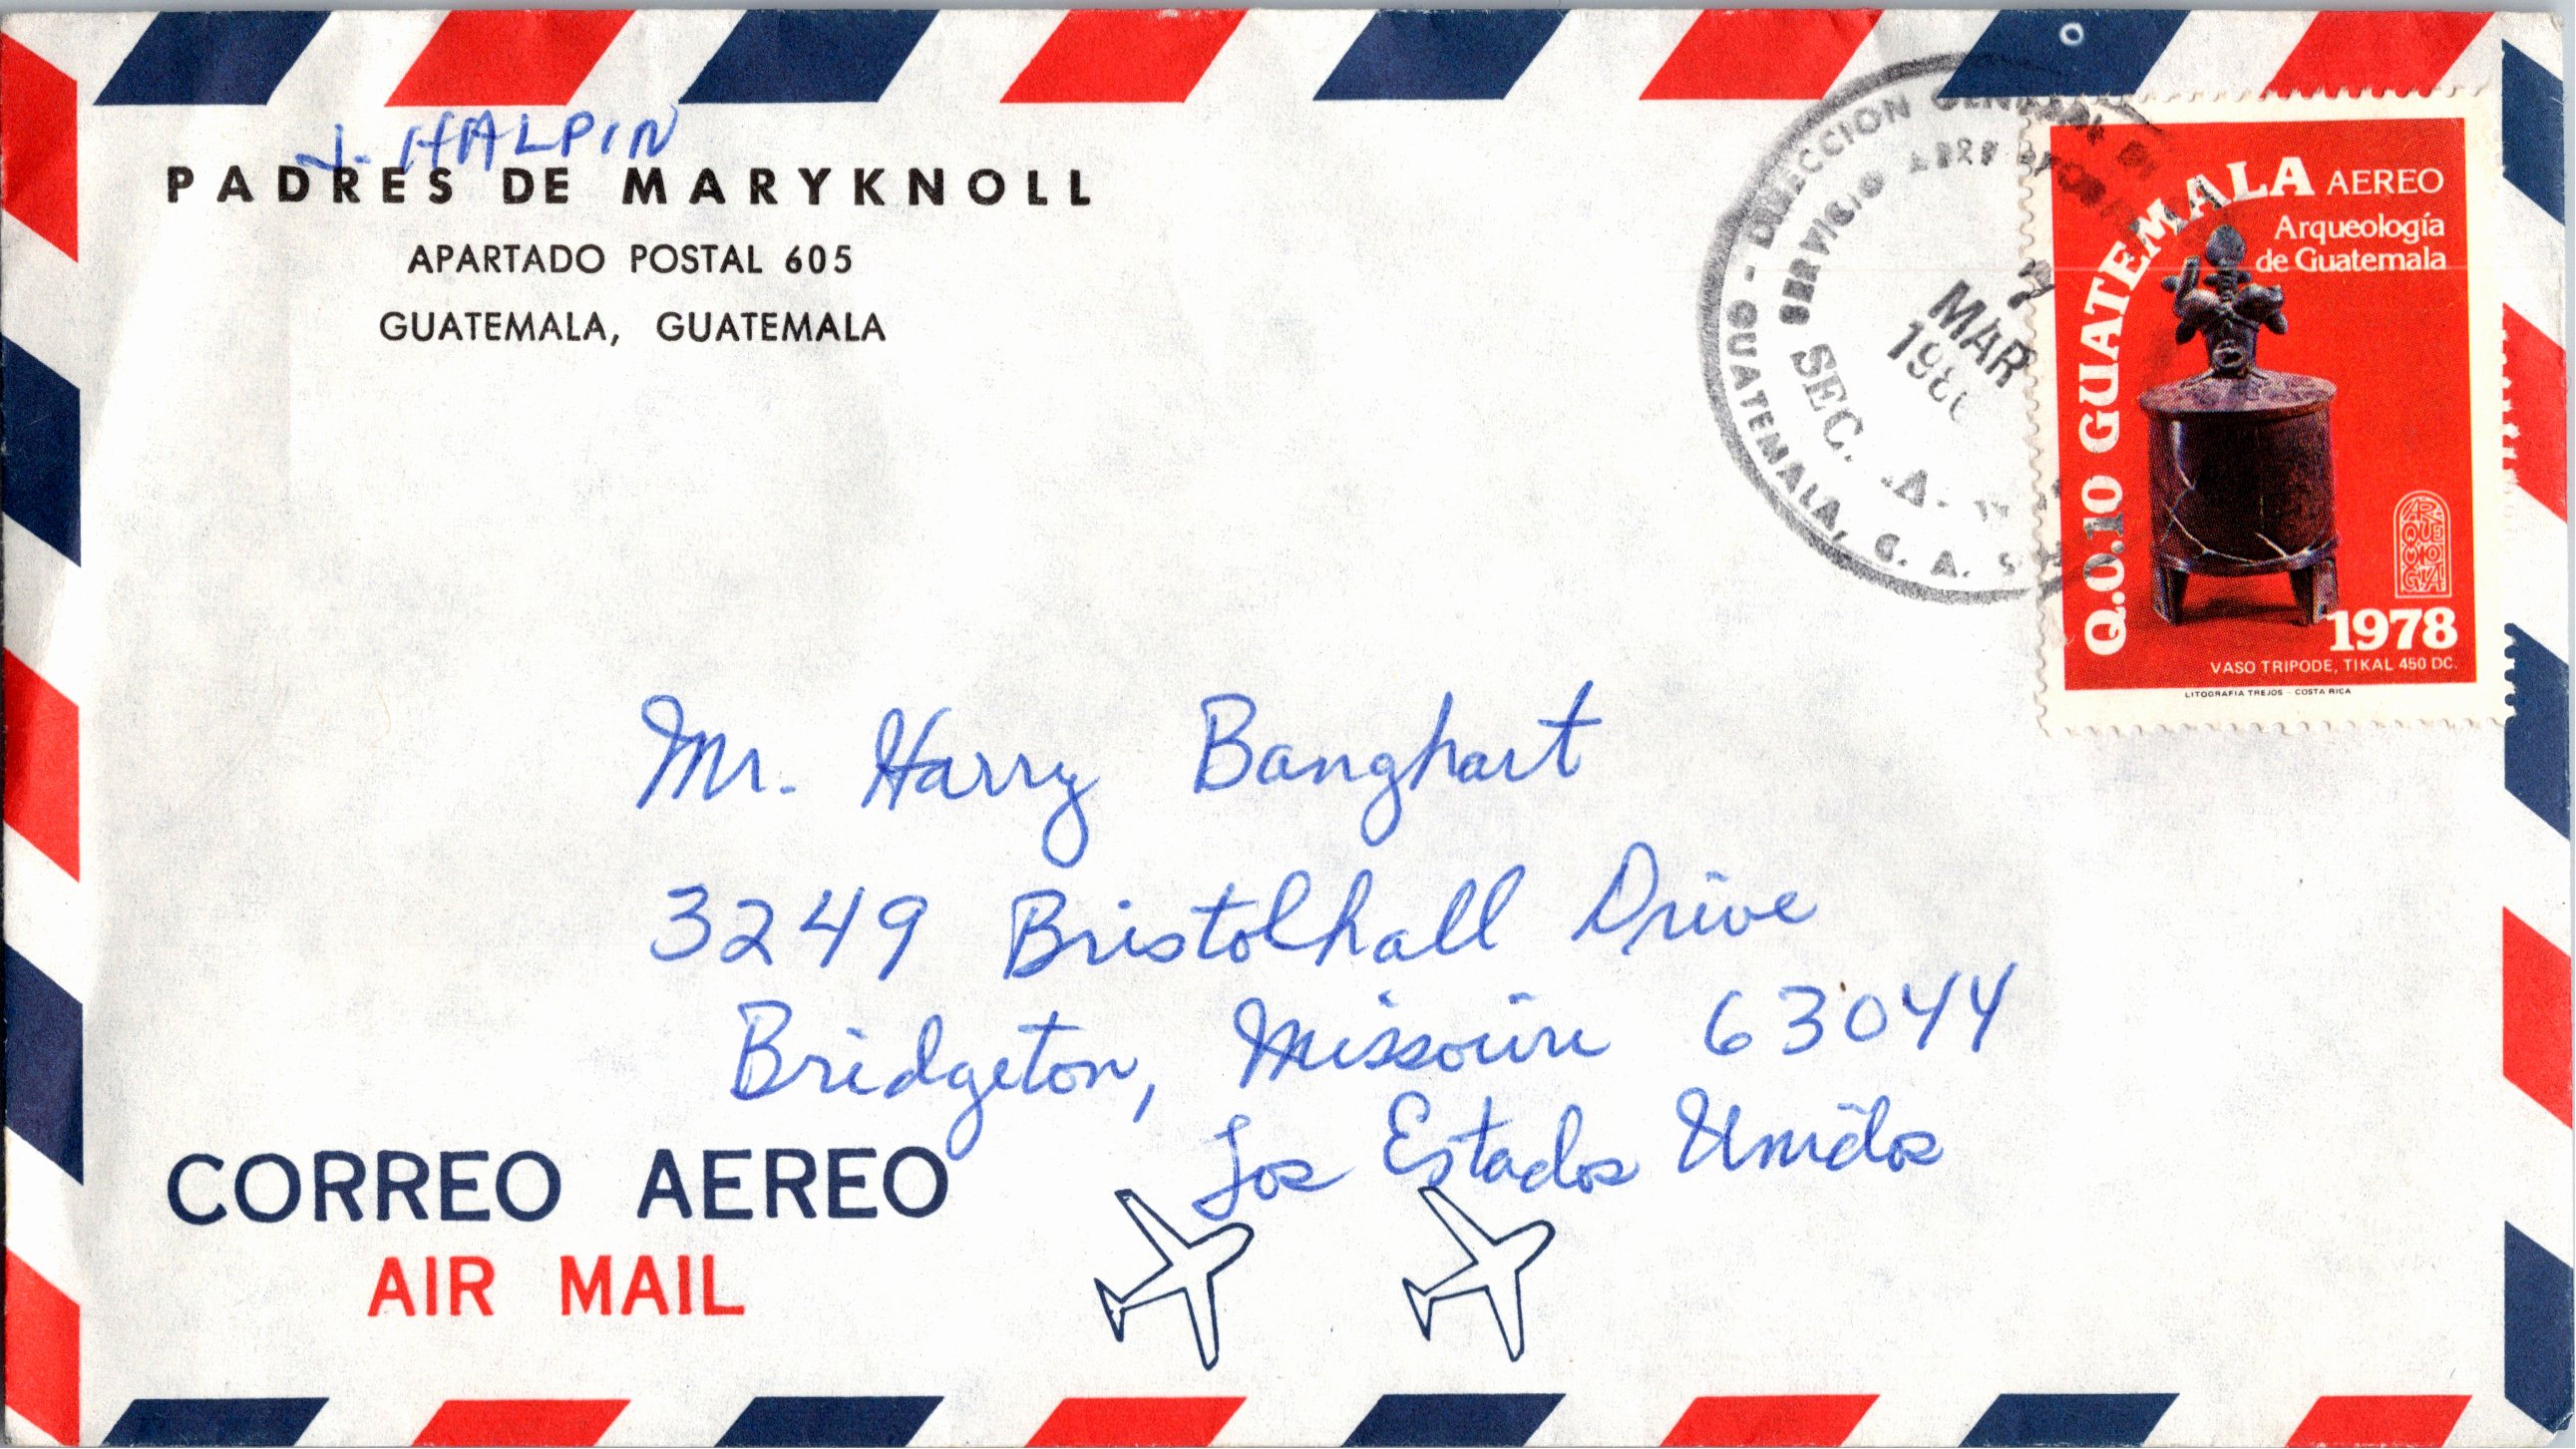 J. HALPIN
PADRES DE MARYKNOLL
APARTADO POSTAL 605
GUATEMALA, GUATEMALA
DIRECCION GENERAL DE
SERVICIO
MAR
SEC.
GUATEMALA, C. A.
GUATEMALA AEREO
Arqueología
de Guatemala
Q.0.10
ARQUEOLOGIA
1978
VASO TRIPODE, TIKAL 450 DC.
LITOGRAFIA TREJOS - COSTA RICA
Mr. Harry Banghart
3249 Bristolhall Drive
Bridgeton, Missouri 63044
Los Estados Unidos
CORREO AEREO
AIR MAIL